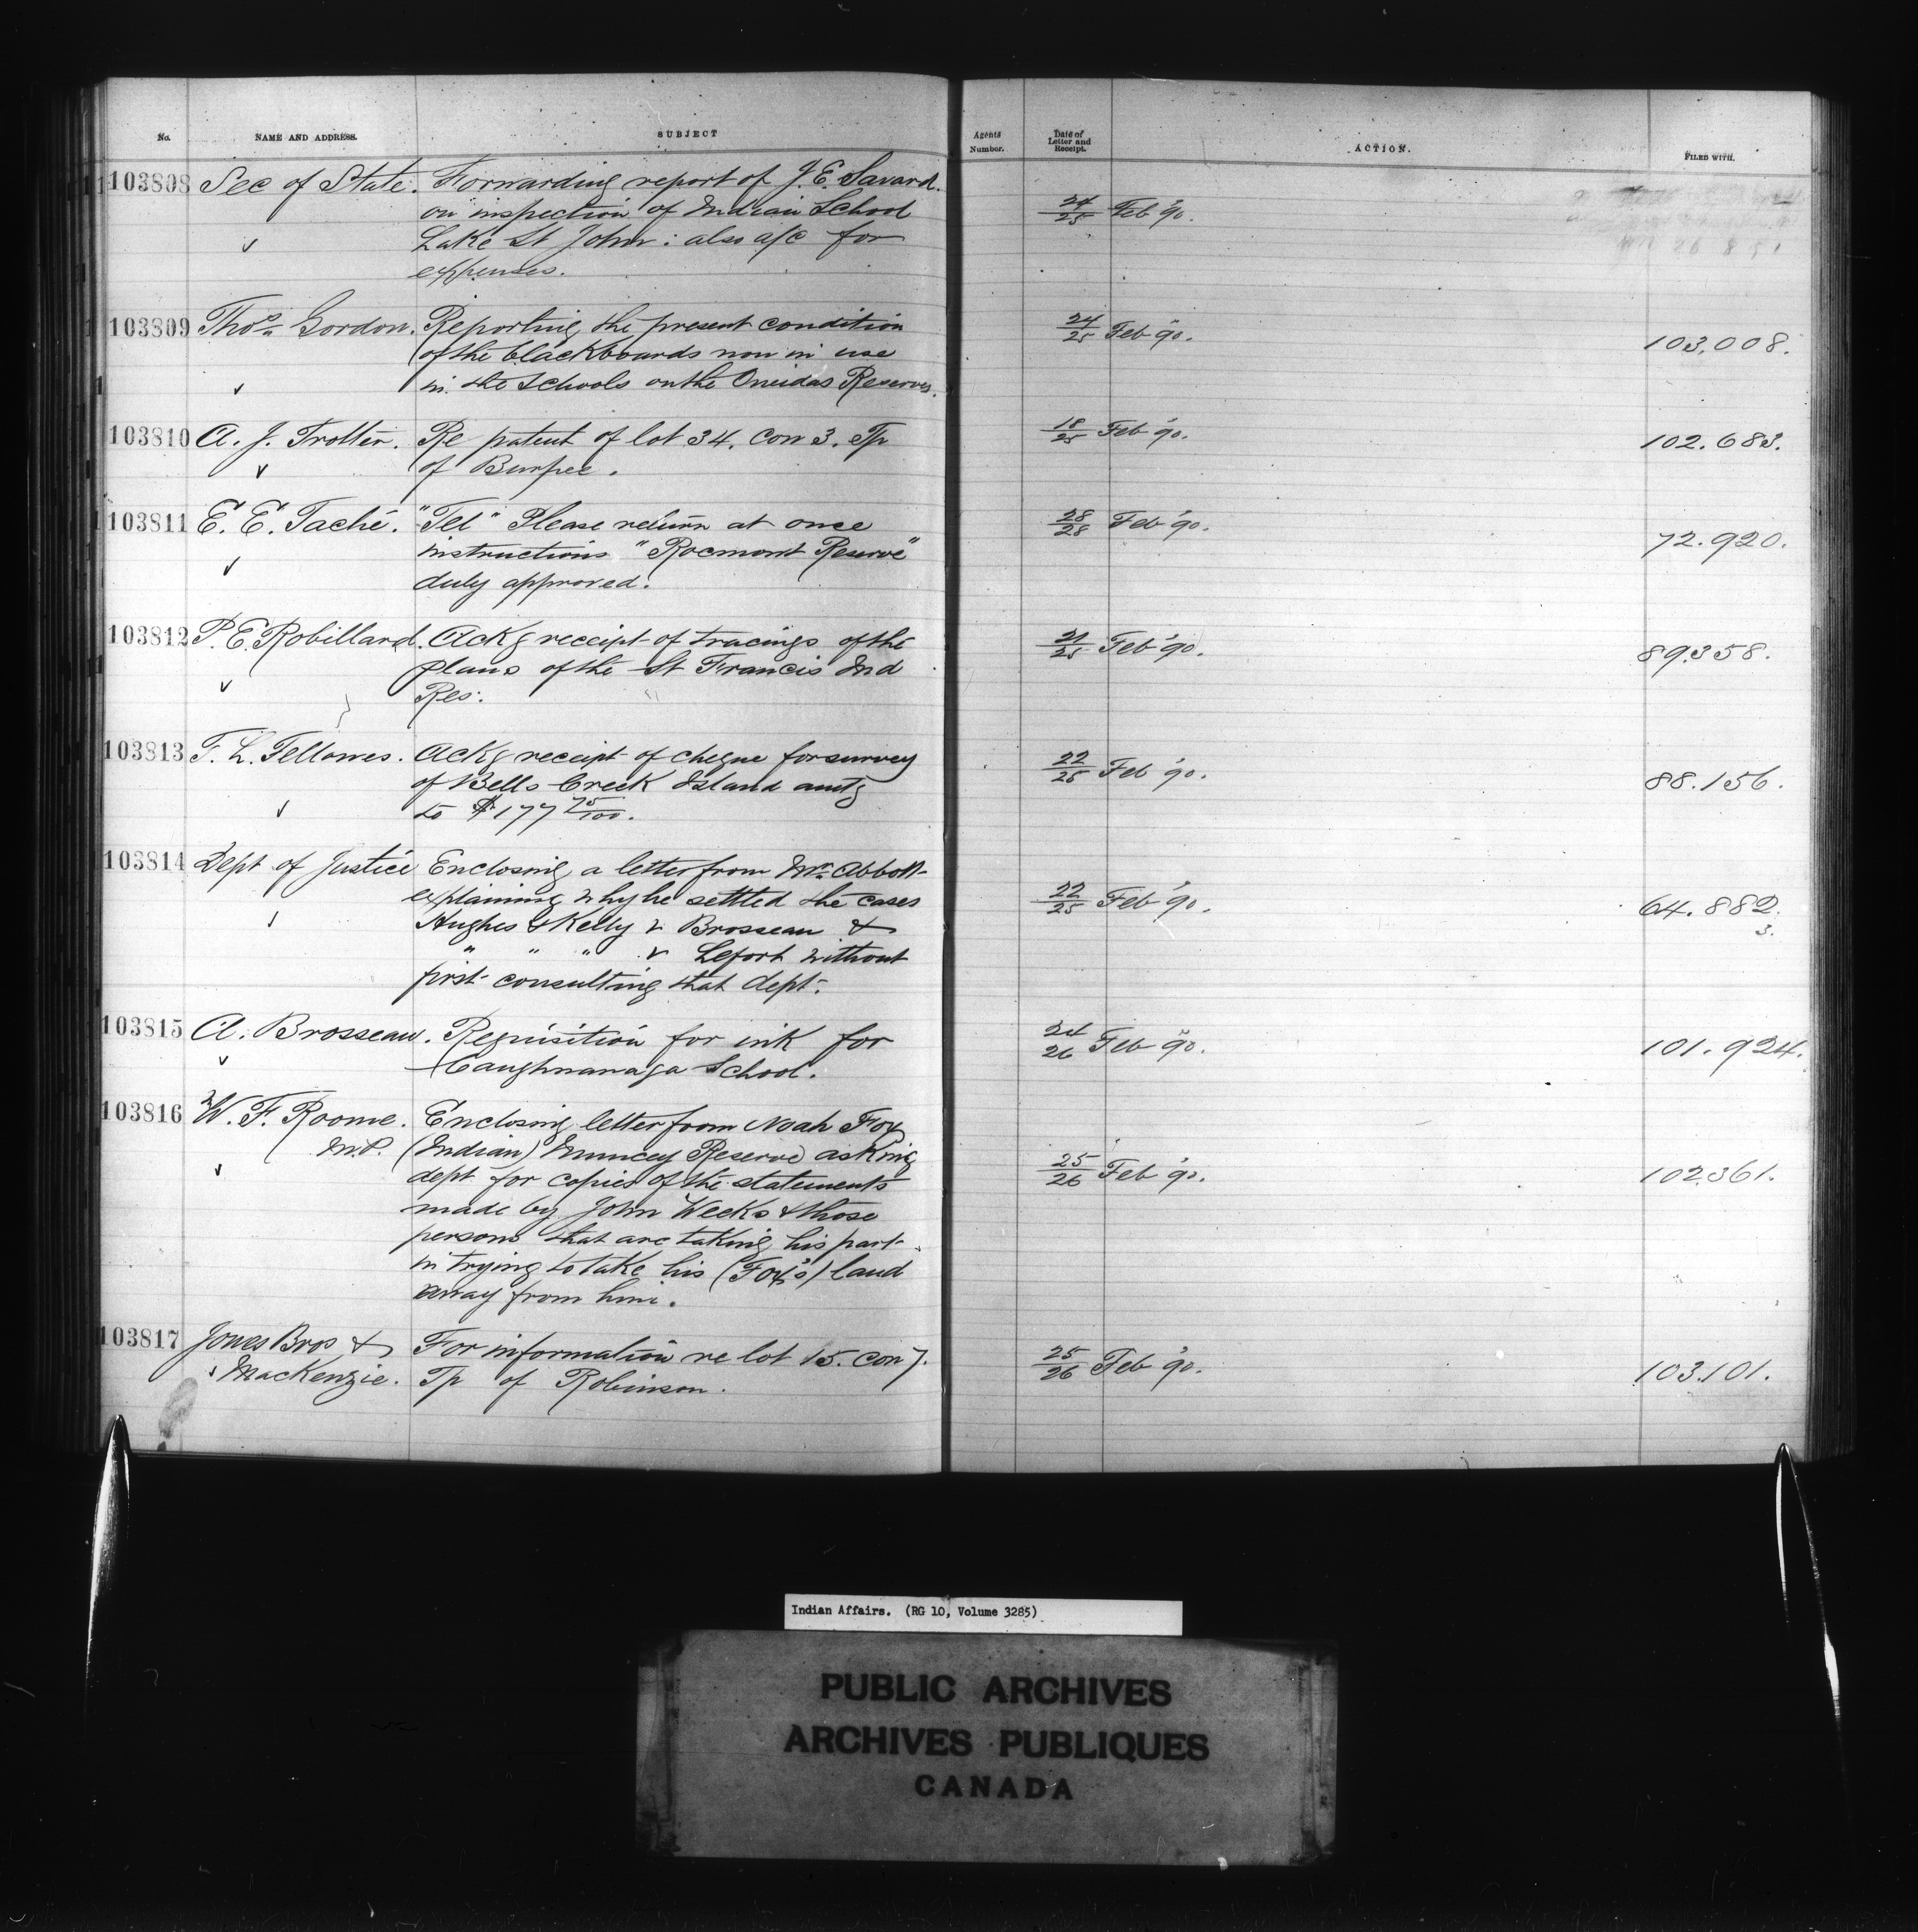 No. NAME AND ADDRESS. SUBJECT
Agents Number. Date of Letter and Receipt. ACTION. FILED WITH.
103808 Sec of State. Forwarding report of J. E. Savard.
on inspection of Indian School
Lake St John: also a/c for
expenses.
24/25 Feb '90.
103809 Thos. Gordon. Reporting the present condition
of the blackboards now in use
in the Schools on the Oneidas Reserves.
24/25 Feb '90. 103,008.
103810 A. J. Trotter. Re patent of lot 34. Con 3. Tp
of Burpee.
18/25 Feb '90. 102.683.
103811 E. E. Taché. "Tel" Please return at once
instructions "Rocmont Reserve"
duly approved.
28/28 Feb '90. 72.920.
103812 P. E. Robillard. Ackg receipt of tracings of the
plans of the St Francis Ind
Res.
21/25 Feb '90. 89.358.
103813 F. L. Fellowes. Ackg receipt of cheque for survey
of Bells Creek Island amtg
to $177 75/100.
22/25 Feb '90. 88.156.
103814 Dept of Justice Enclosing a letter from Mr. Abbott
explaining why he settled the cases
Hughes & Kelly v Brosseau &
" " " v Lefort without
first consulting that dept.
22/25 Feb '90. 64.882.
3.
103815 A. Brosseau. Requisition for ink for
Caughnawaga School.
24/26 Feb '90. 101.924.
103816 W. F. Roome. Enclosing letter from Noah Fox
M.P. (Indian) Muncey Reserve asking
dept for copies of the statements
made by John Weeks & those
persons that are taking his part
in trying to take his (Fox's) land
away from him.
25/26 Feb '90. 102.361.
103817 Jones Bros & For information re lot 15. Con 7.
MacKenzie. Tp of Robinson.
25/26 Feb '90. 103.101.
Indian Affairs. (RG 10, Volume 3285)
PUBLIC ARCHIVES
ARCHIVES PUBLIQUES
CANADA